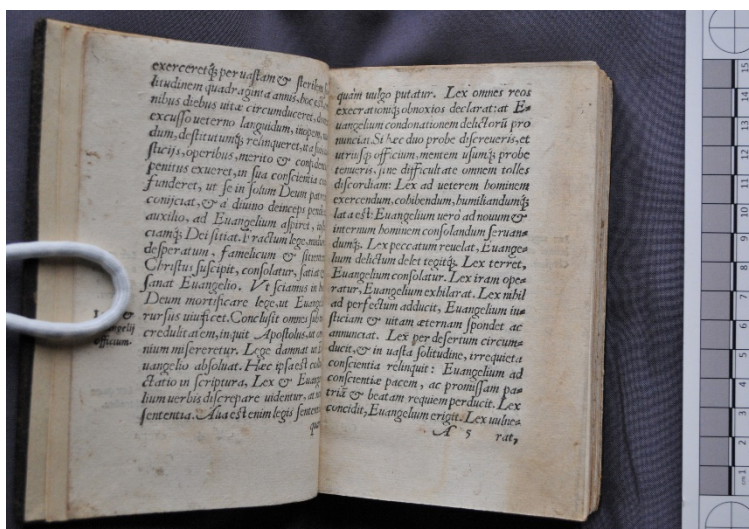 exerceretq́; per uastam & sterilem
litudinem quadraginta annis, hoc est
nibus diebus uitæ circumduceret,
excusso ueterno languidum, inopem,
dum, destitutumq́; relinqueret, ut a
sticijs, operibus, merito &
penitus exueret, in sua conscientia
funderet, ut se in solum Deum
conijciat, & a diuino deinceps
auxilio, ad Euangelium aspiret,
ciamq́; Dei sitiat. Fractum lege,
desperatum, famelicum &
Christus suscipit, consolatur, satiat
sanat Euangelio. Vt sciamus
Deum mortificare lege, ut
rursus uiuificet. Conclusit omnes sub
credulitatem, inquit Apostolus, ut
nium misereretur. Lege damnat ut
uangelio absoluat. Hæc ipsa est
ctatio in scriptura, Lex &
lium uerbis discrepare uidentur, at
sententia. Alia est enim legis
officium.
quàm uulgo putatur. Lex omnes reos
execrationiq́; obnoxios declarat: at E-
uangelium condonationem delictorũ pro
nunciat. Si hæc duo probe discreueris, et
utriusq; officium, mentem usumq́; probe
tenueris, sine difficultate omnem tolles
discordiam: Lex ad ueterem hominem
exercendum, cohibendum, humiliandumq́;
lata est: Euangelium uerò ad nouum &
internum hominem consolandum seruan-
dumq́;. Lex peccatum reuelat, Euange-
lium delictum delet tegitq́;. Lex terret,
Euangelium consolatur. Lex iram ope-
ratur, Euangelium exhilarat. Lex nihil
ad perfectum adducit, Euangelium iu-
sticiam & uitam æternam spondet ac
annunciat. Lex per desertum circum-
ducit, & in uasta solitudine, irrequieta
conscientia relinquit: Euangelium ad
conscientiæ pacem, ac promissam pa-
triã & beatam requiem perducit. Lex
concidit, Euangelium erigit. Lex uulne-
A 5 rat,